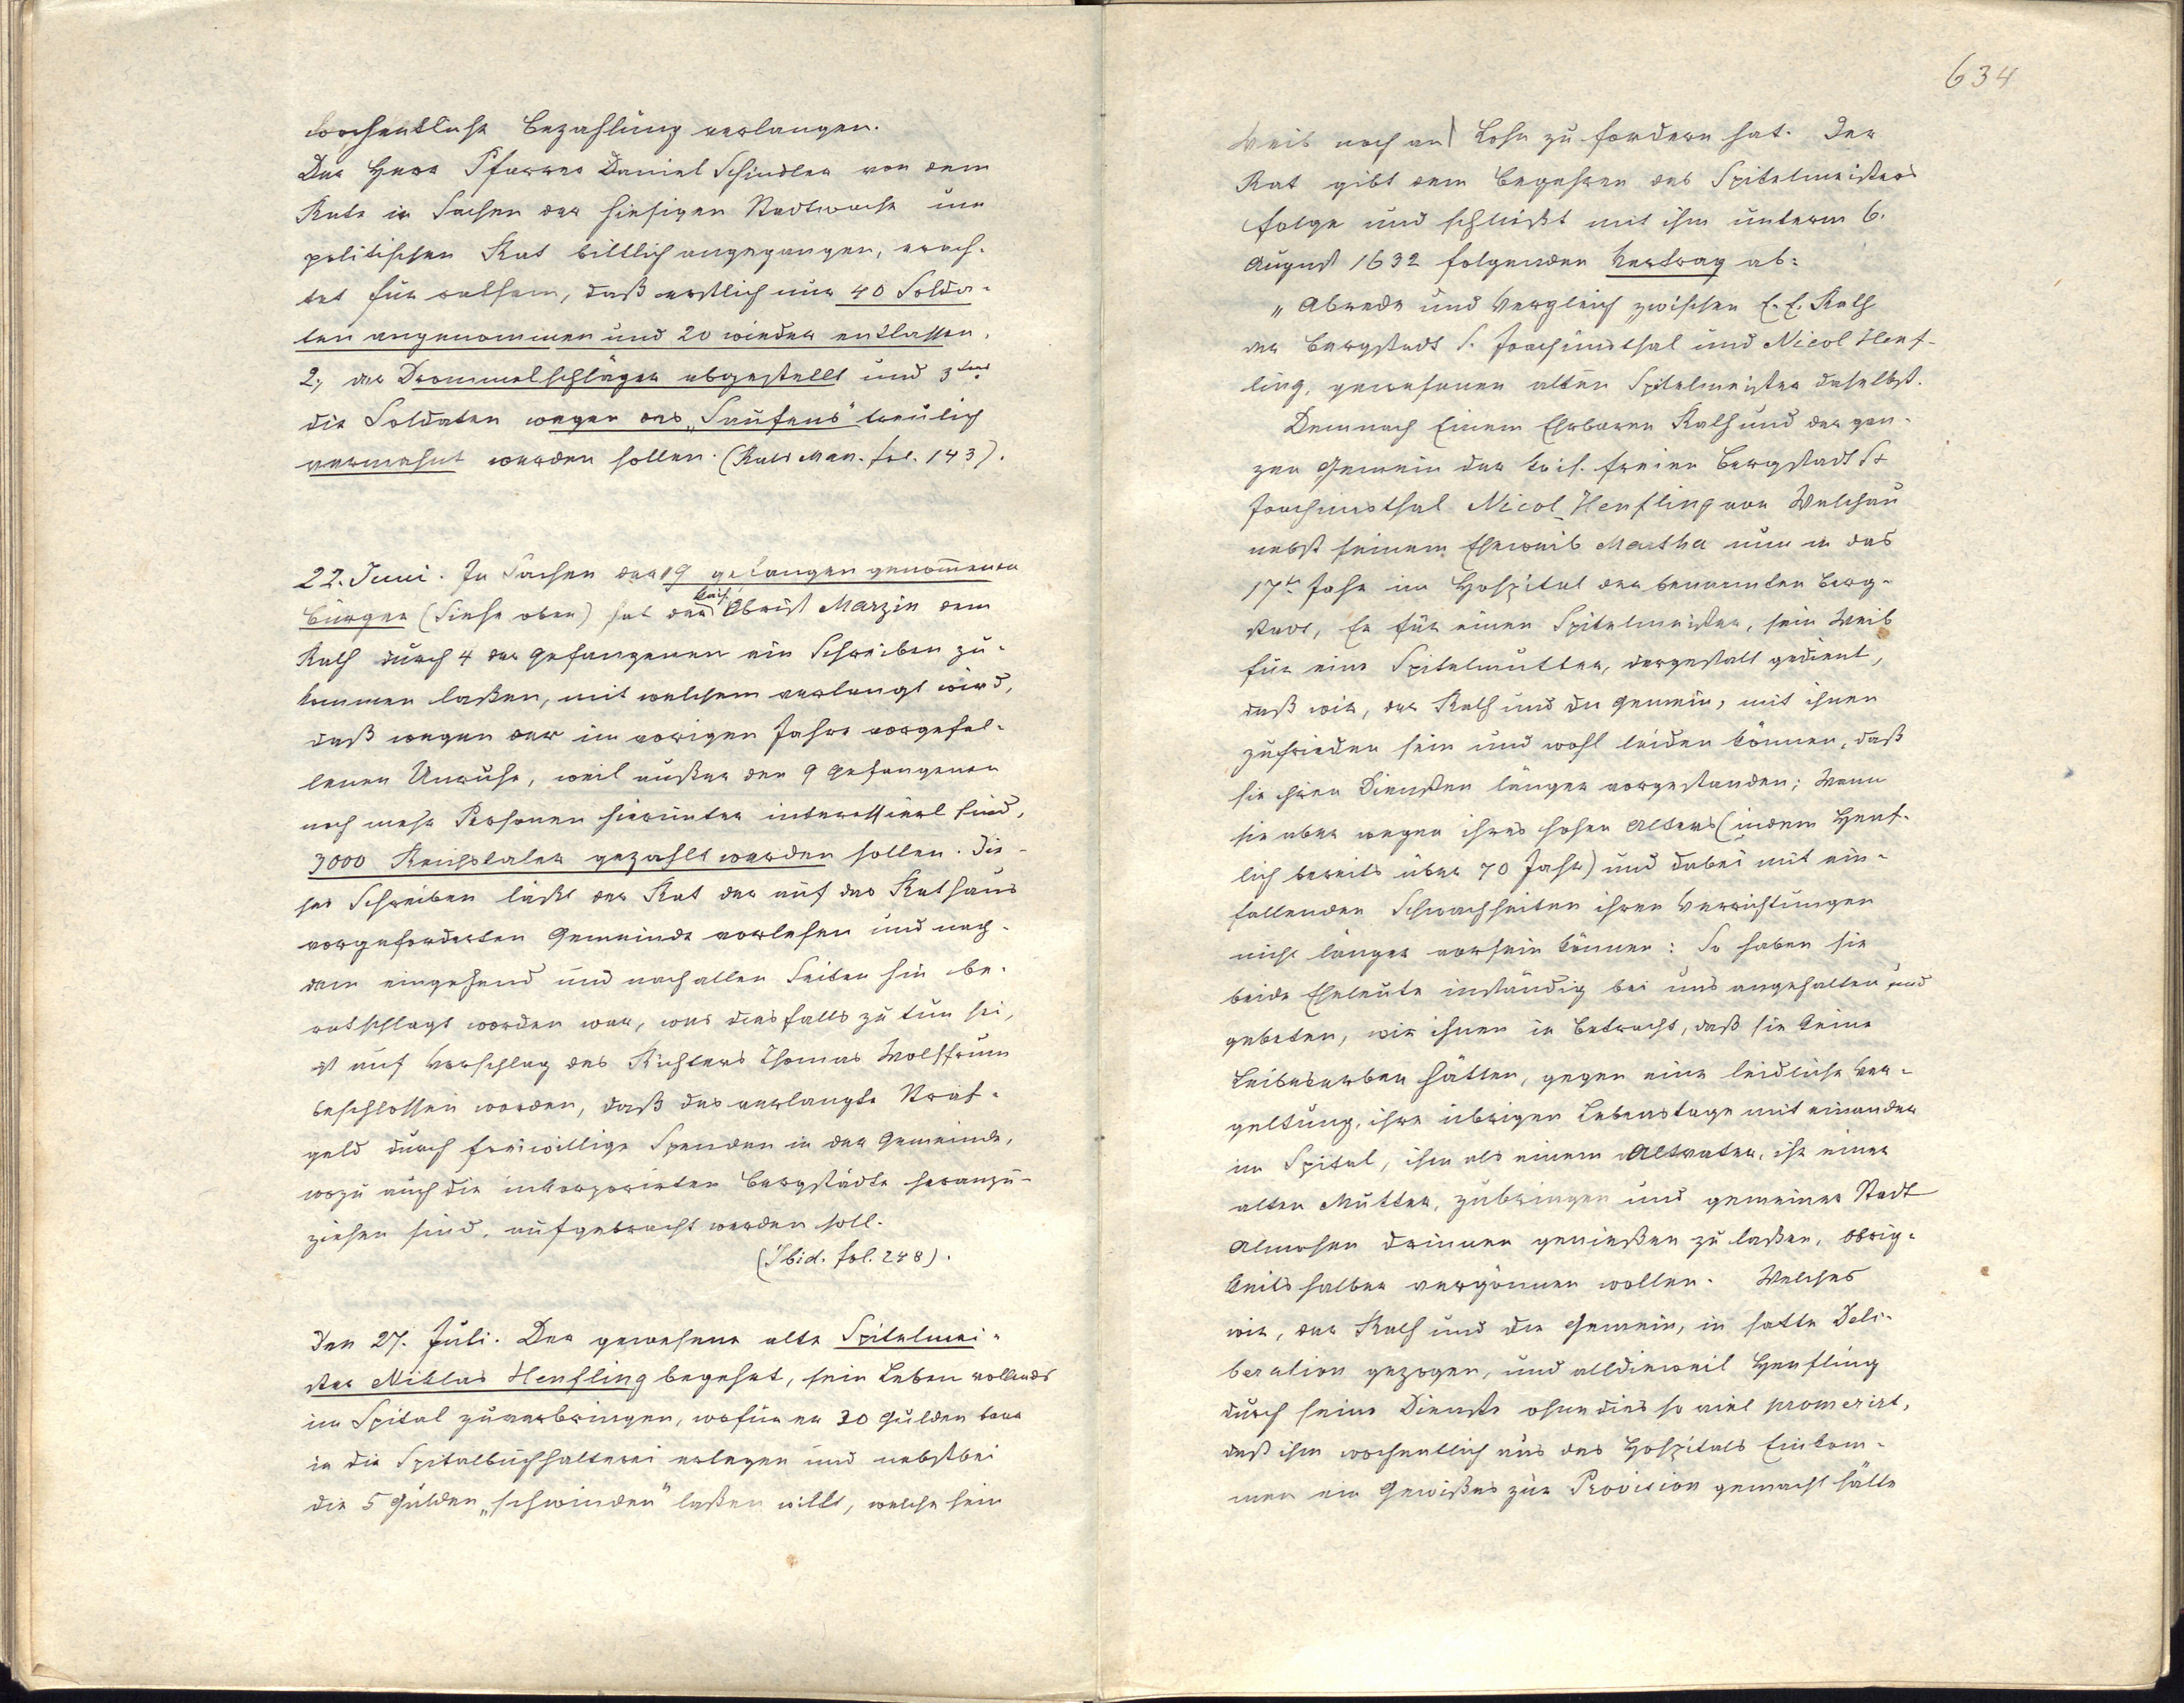 wochentliche Bezahlung verlangen.
Der Herr Pfarrer Daniel Schindler von dem
Rate in Sachen der hiesigen Stadtwache um
politischen Rat bittlich angegangen, erach-
tet für rathsam, daß erstlich nur 40 Solda-
ten angenommen und 20 wieder entlassen,
2., der Drommelschläger abgestellt und 3tens
die Soldaten wegen des „Saufens" treulich
vermahnt werden sollen. (Rats Man. fol. 143).
22. Juni. In Sachen der 9 gefangen genommenen
Bürger (Siehe oben) hat der kais. Obrist Marzin dem
Rath durch 4 der Gefangenen ein Schreiben zu-
kommen laßen, mit welchem verlangt wird,
daß wegen der im vorigen Jahre vorgefal-
lenen Unruhe, weil außer den 9 Gefangenen
noch mehr Personen hierunter interessiert sind,
3000 Reichstaler gezahlt werden sollen. Die-
ses Schreiben läßt der Rat der auf das Rathaus
vorgeforderten Gemeinde vorlesen und nach-
dem eingehend und nach allen Seiten hin be-
ratschlagt worden war, was diesfalls zu tun sei,
ist auf Vorschlag des Richters Thomas Wolffrum
beschlossen worden, daß das verlangte Straf-
geld durch freiwillige Spenden in der Gemeinde,
wozu auch die inkorporirten Bergstädte heranzu-
ziehen sind, aufgebracht werden soll.
(Ibid. fol. 248).
Den 27. Juli. Der gewesene alte Spitelmei-
ster Niklas Henfling begehrt, sein Leben vollends
im Spital zuverbringen, wofür er 30 Gulden baar
in die Spitalbuchhalterei erlegen und nebstbei
die 5 Gulden „schwinden" laßen will, welche sein
634
Weib noch an Lohn zu fordern hat. Der
Rat gibt dem Begehren des Spitelmeisters
Folge und schließt mit ihm unterm 6.
August 1632 folgenden Vertrag ab:
„Abrede und Vergleich zwischen E. E. Rath
der Bergstadt S. Joachimsthal und Nicol Henf-
ling, gewesenen alten Spitelmeister daselbst.
Demnach Einem Ehrbaren Rath und der gan-
zen Gemein der kais. freien Bergstadt St
Joachimsthal Nicol Henfling von Welchau
nebst seinem Eheweib Martha nun in das
17te Jahr im Hospital der benannten Berg-
stadt, Er für einen Spitelmeister, sein Weib
für eine Spitelmutter, dergestalt gedient,
daß wir, der Rath und die Gemein, mit ihnen
zufrieden sein und wohl leiden können, daß
sie ihren Diensten länger vorgestanden; Wenn
sie aber wegen ihres hohen Alters (indem Henf-
lich bereits über 70 Jahr) und dabei mit ein-
fallenden Schwachheiten ihren Verrichtungen
nicht länger vorsein können: So haben sie
beide Eheleute inständig bei uns angehalten und
gebeten, wir ihnen in Betracht, daß sie keine
Leibeserben hätten, gegen eine leidliche Ver-
geltung, ihre übrigen Lebenstage mit einander
im Spital, ihm als einem Altvater, ihr einer
alten Mutter, zubringen und gemeiner Stadt
Almosen drinnen genießen zu laßen, Obrig-
keits halber vergönnen wollen. Welches
wir, der Rath und die Gemein, in satte Deli-
beration gezogen, und alldieweil Henfling
durch seine Dienste ohne dies so viel promerirt,
daß ihm wochentlich aus des Hospitals Einkom-
men ein Gewißes zur Provision gemacht hätte